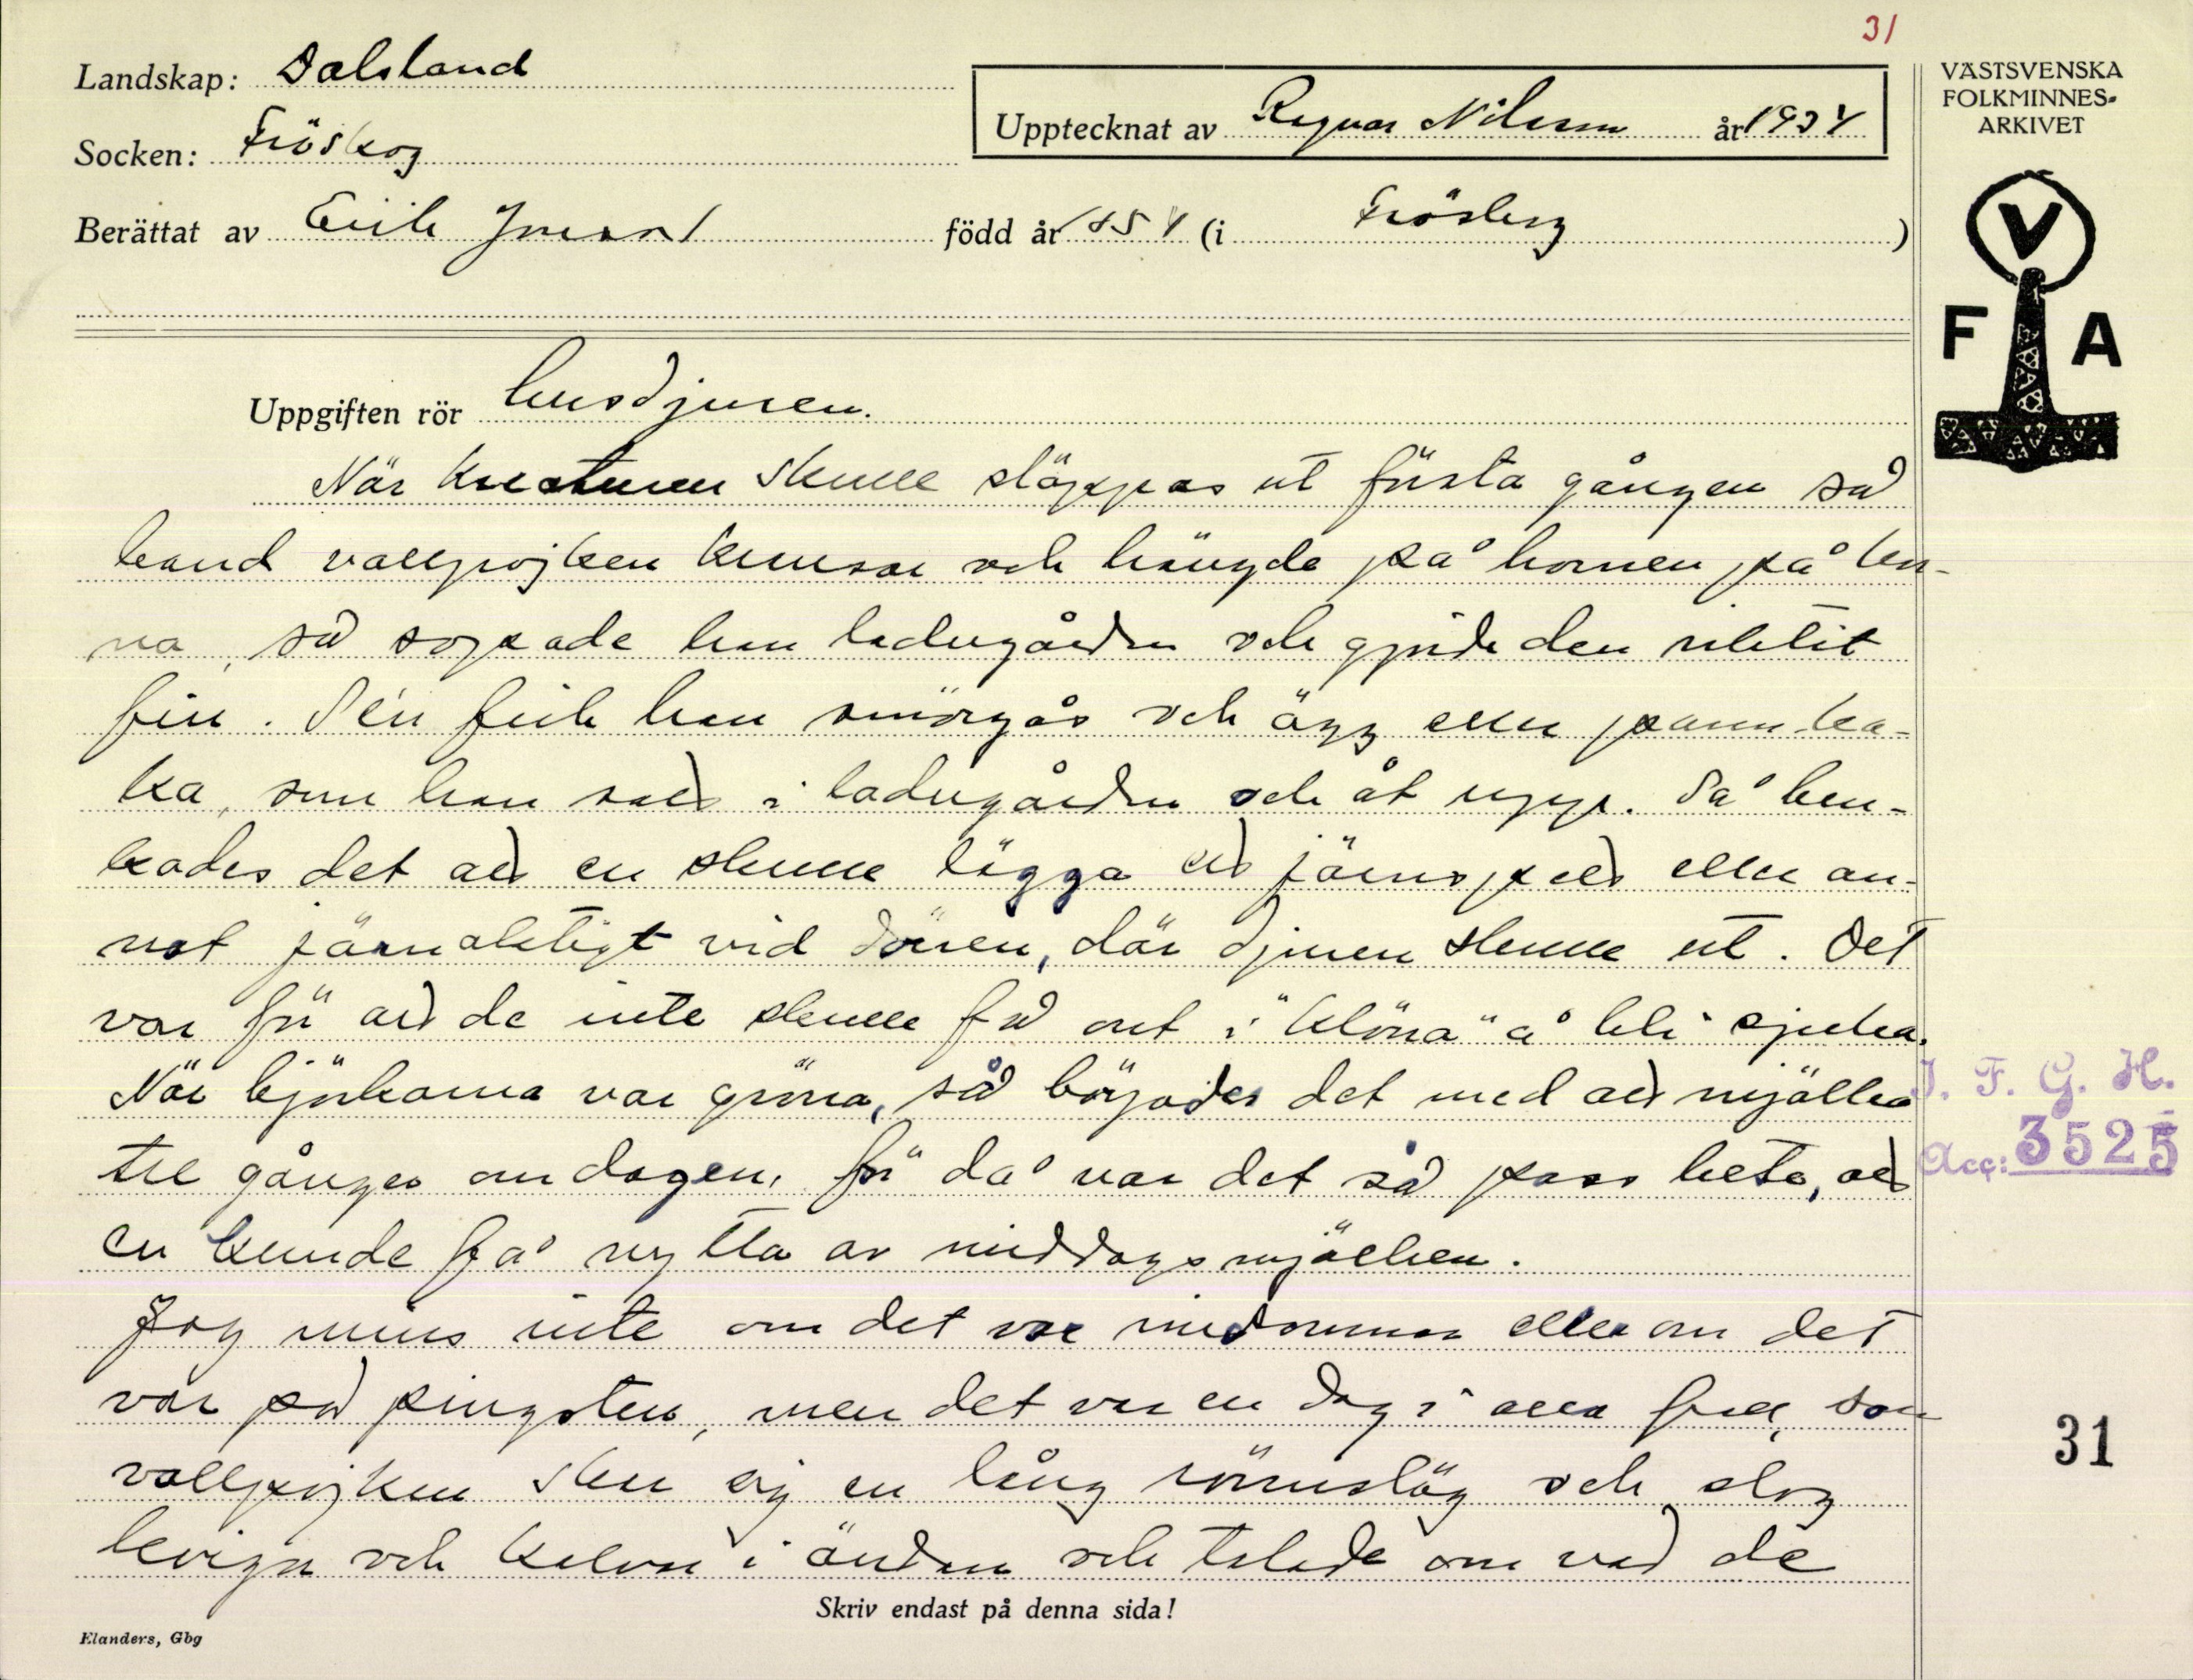 31
Landskap: Dalsland
Socken: Fröskog
Upptecknat av Ragnar Nilsson år 1934
Berättat av Erik född år 1854 (i Fröskog)
VÄSTSVENSKA
FOLKMINNES-
ARKIVET
V
F A
Uppgiften rör husdjuren.
När kreaturen skulle släppas ut första gången så
band vallpojken kransar och hängde på hornen på ku-
na, så sopade han ladugården och gjorde den riktit
fin. Sén fick han smörgås och ägg eller pannka-
ka, som han satt i ladugården och åt upp. Så bru-
kades det att en skulle lägga ett järnspett eller an-
not järnaktigt vid dörren, där djuren skulle ut. Det
var för att de inte skulle få ont i "klöna" å bli sjuka.
När björkarna var gröna, så börjades det med att mjölka
tre gånger om dagen, för då var det så pass bete, att
en kunde få nytta av middagsmjölken.
Jag minns inte om det var midsommar eller om det
var på pingsten, men det var en dag i alla fall, som
vallpojken skar sig en lång rönnslög och slog
kviger och kalvar i ändan och talade om vad de
Skriv endast på denna sida!
Elanders, Gbg
I. F. G. H.
Acc: 3525
31